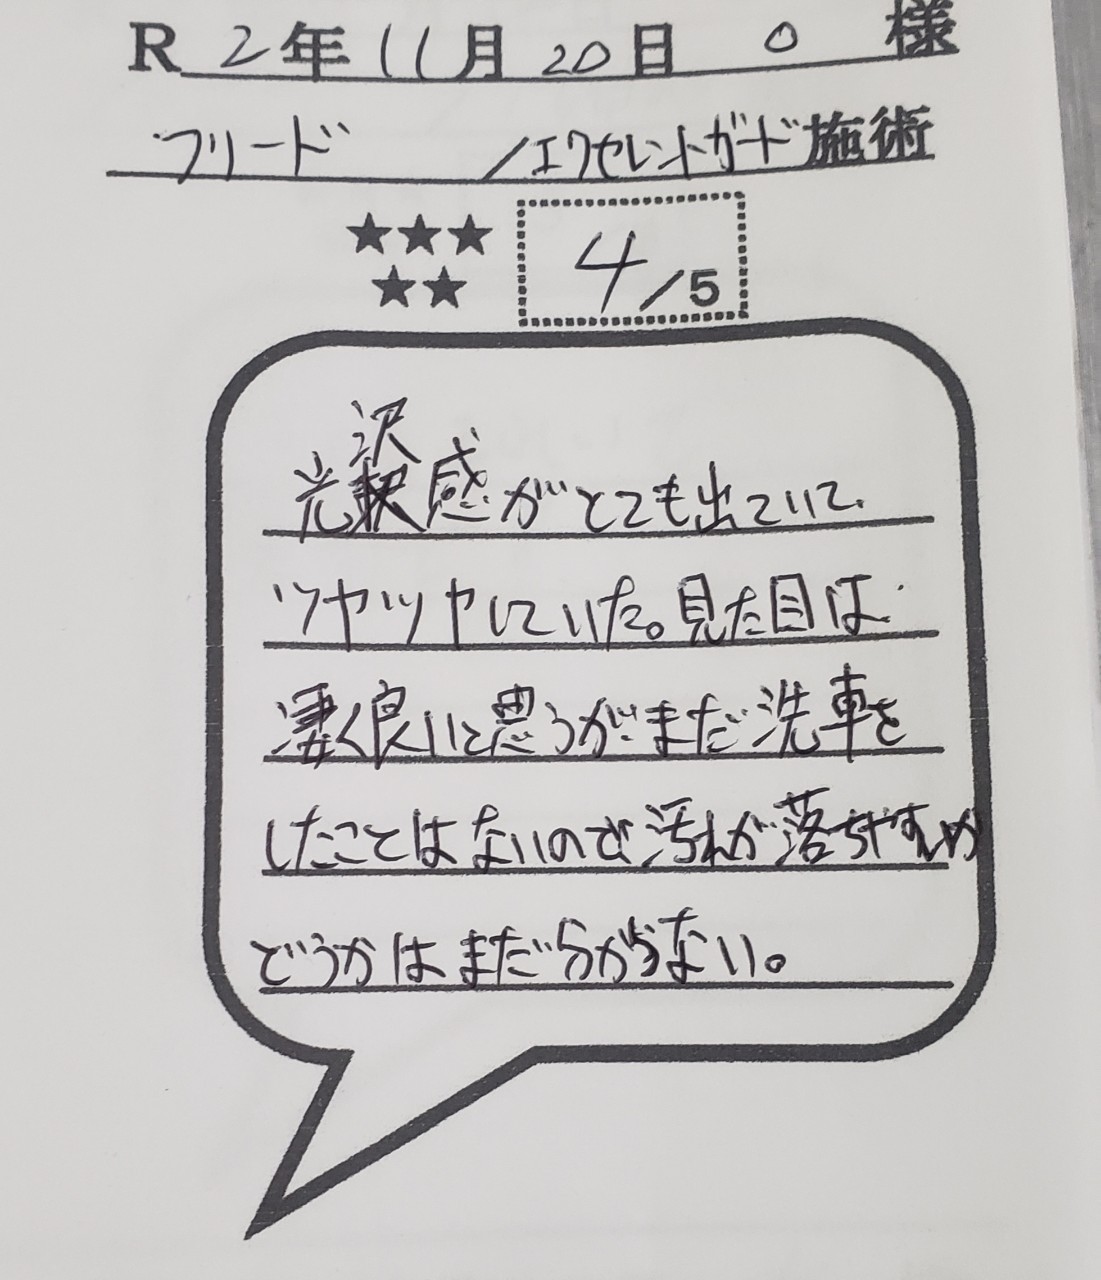 R 2年 11月 20日 O 様
フリード /エクセレントガード施術
★★★
★★
4/5
光沢感がとても出ていて、
ツヤツヤしていた。見た目は
凄く良いと思うがまだ洗車を
したことはないので汚れが落ちやすいか
どうかはまだ分からない。